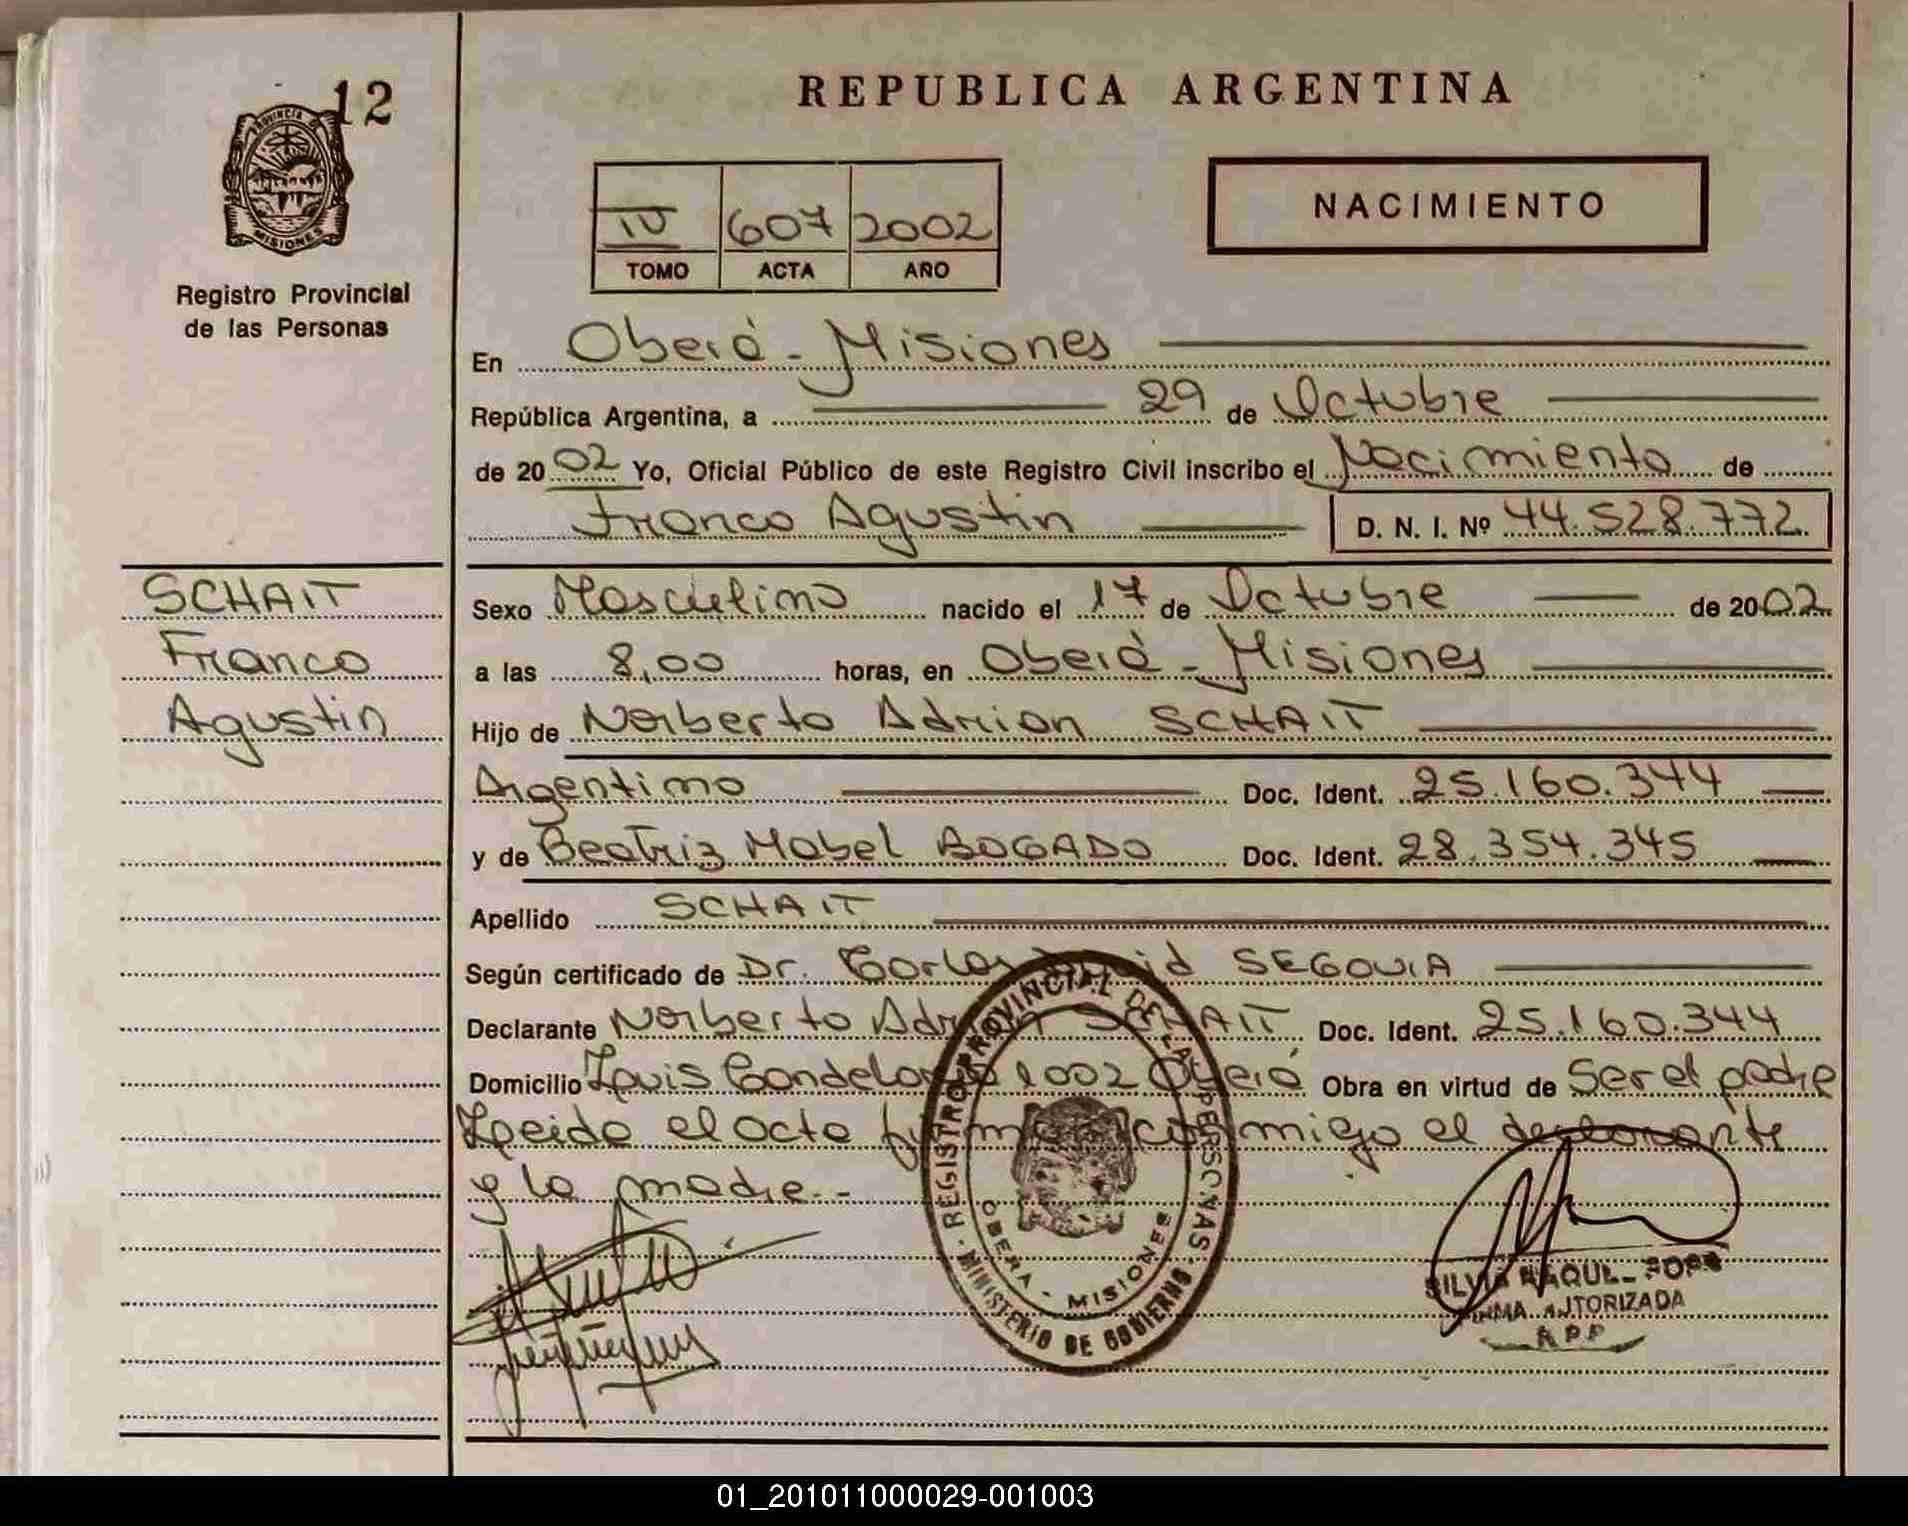 12
PROVINCIA DE
MISIONES
Registro Provincial
de las Personas
SCHAIT
Franco
Agustin
REPUBLICA ARGENTINA
IV 607 2002
TOMO ACTA AÑO
NACIMIENTO
En Oberá - Misiones
República Argentina, a 29 de Octubre
de 2002 Yo, Oficial Público de este Registro Civil inscribo el Nacimiento de
Franco Agustin D. N. I. Nº 44.528.772.
Sexo Masculino nacido el 17 de Octubre de 2002
a las 8,00 horas, en Oberá - Misiones
Hijo de Norberto Adrian SCHAIT
Argentino Doc. Ident. 25.160.344
y de Beatriz Mabel BOGADO Doc. Ident. 28.354.345
Apellido SCHAIT
Según certificado de Dr. Carlos David SEGOVIA
Declarante Norberto Adrian SCHAIT Doc. Ident. 25.160.344
Domicilio Louis 1002 Oberá Obra en virtud de Ser el padre
Leida el acta firma conmigo el declarante
y la madre.-
REGISTRO PROVINCIAL DE LAS PERSONAS
MINISTERIO DE GOBIERNO
OBERA - MISIONES
SILVIA RAQUEL
FIRMA AUTORIZADA
RPP
01_201011000029-001003